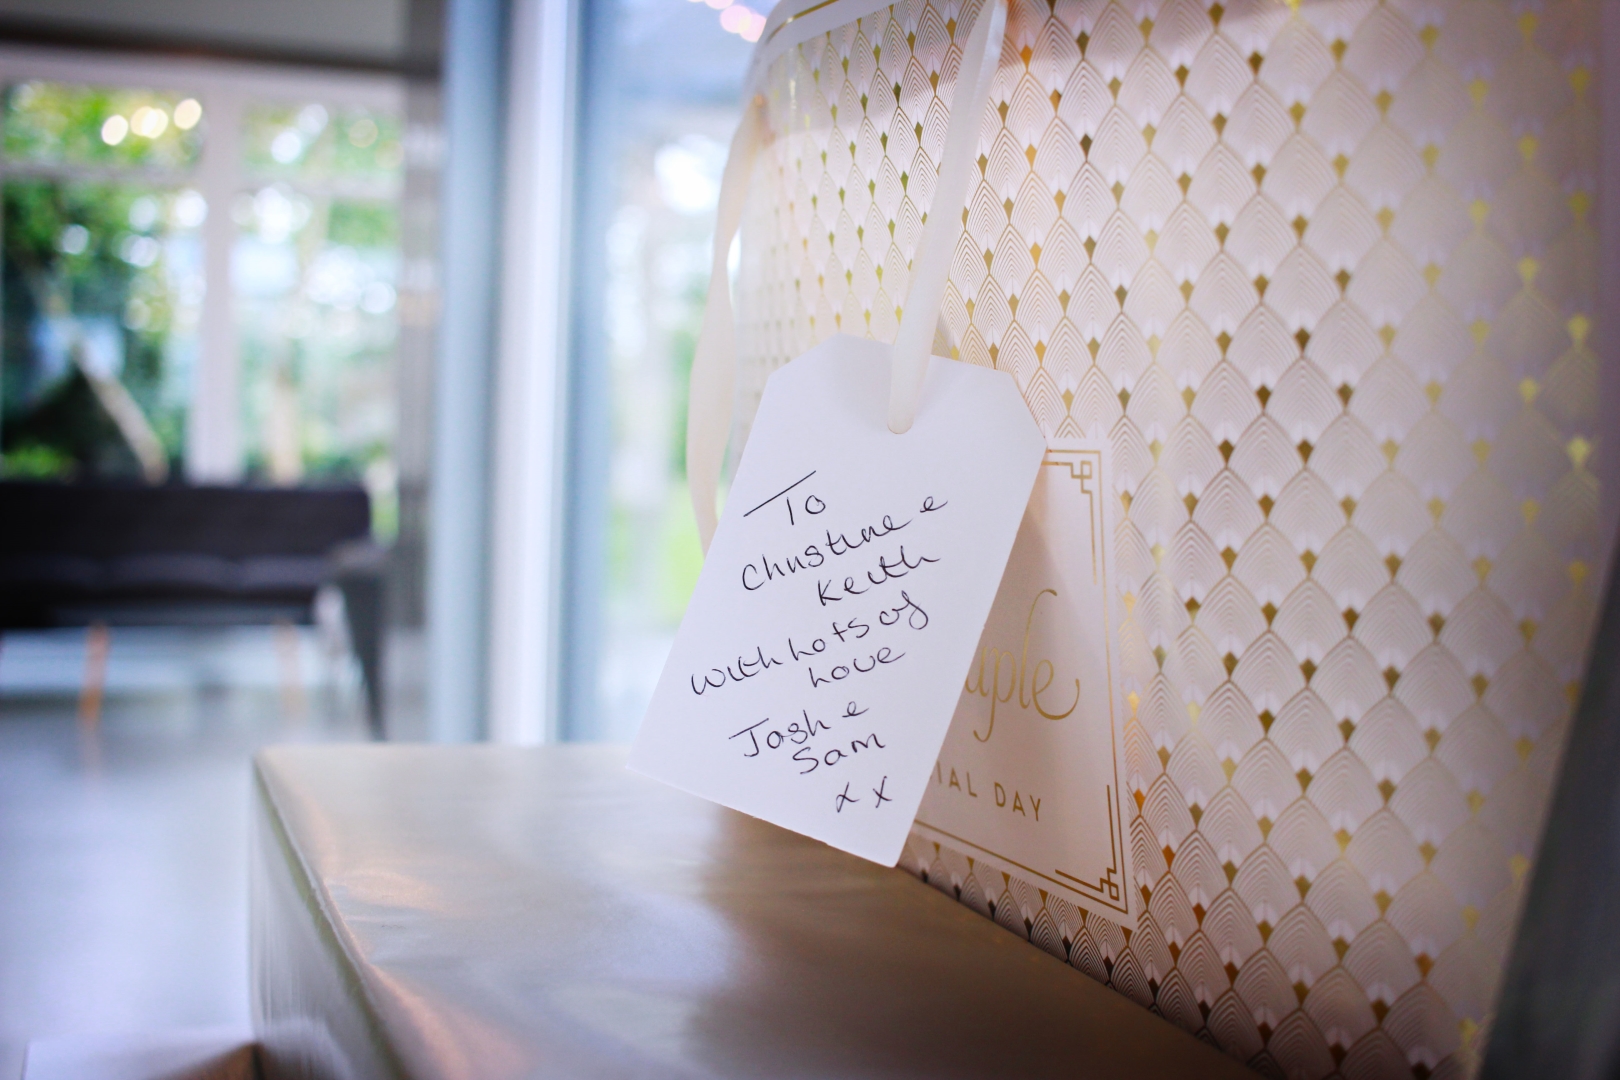 To
Christine e
Keith
with Lots of
Love
Josh e
Sam
x x
uple
IAL DAY